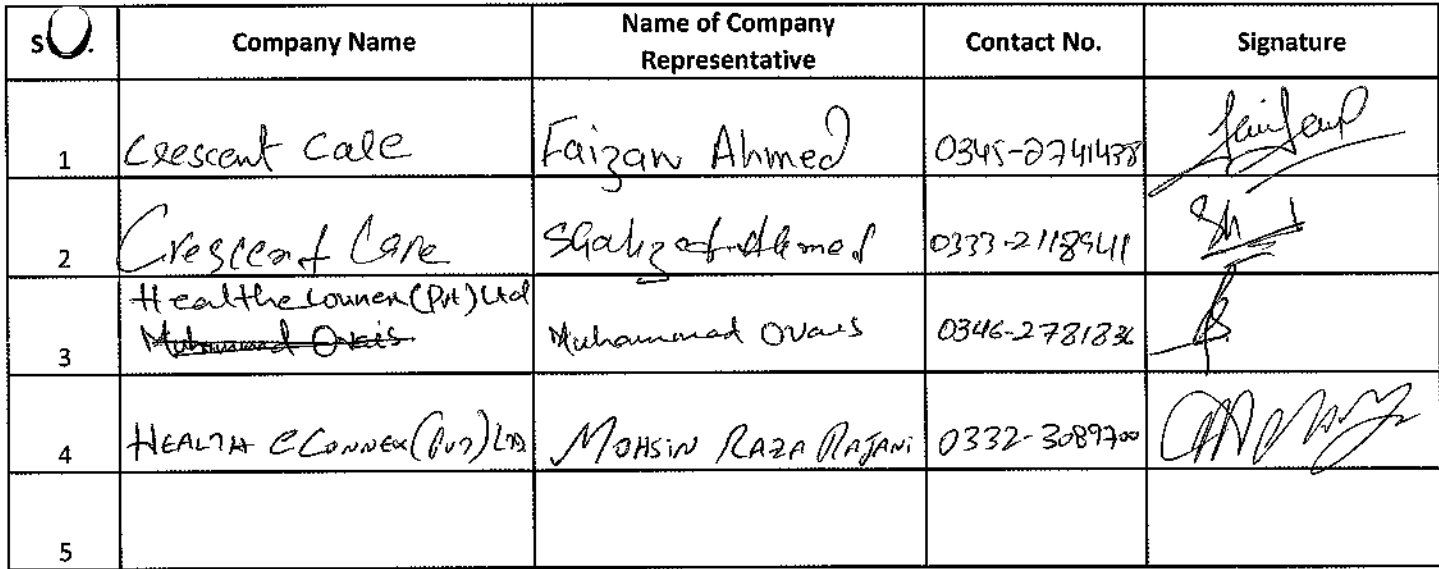 S Company Name Name of Company Representative Contact No. Signature
1 Crescent Care Faizan Ahmed 0345-2741438
2 Crescent Care Shahzad Ahmed 0333-2118941
3 Healtheconnex (Pvt) Ltd Muhammad Ovais Muhammad Ovais 0346-2781836
4 HEALTH eCONNEX (PVT) LTD MOHSIN RAZA RAJANI 0332-3089700
5